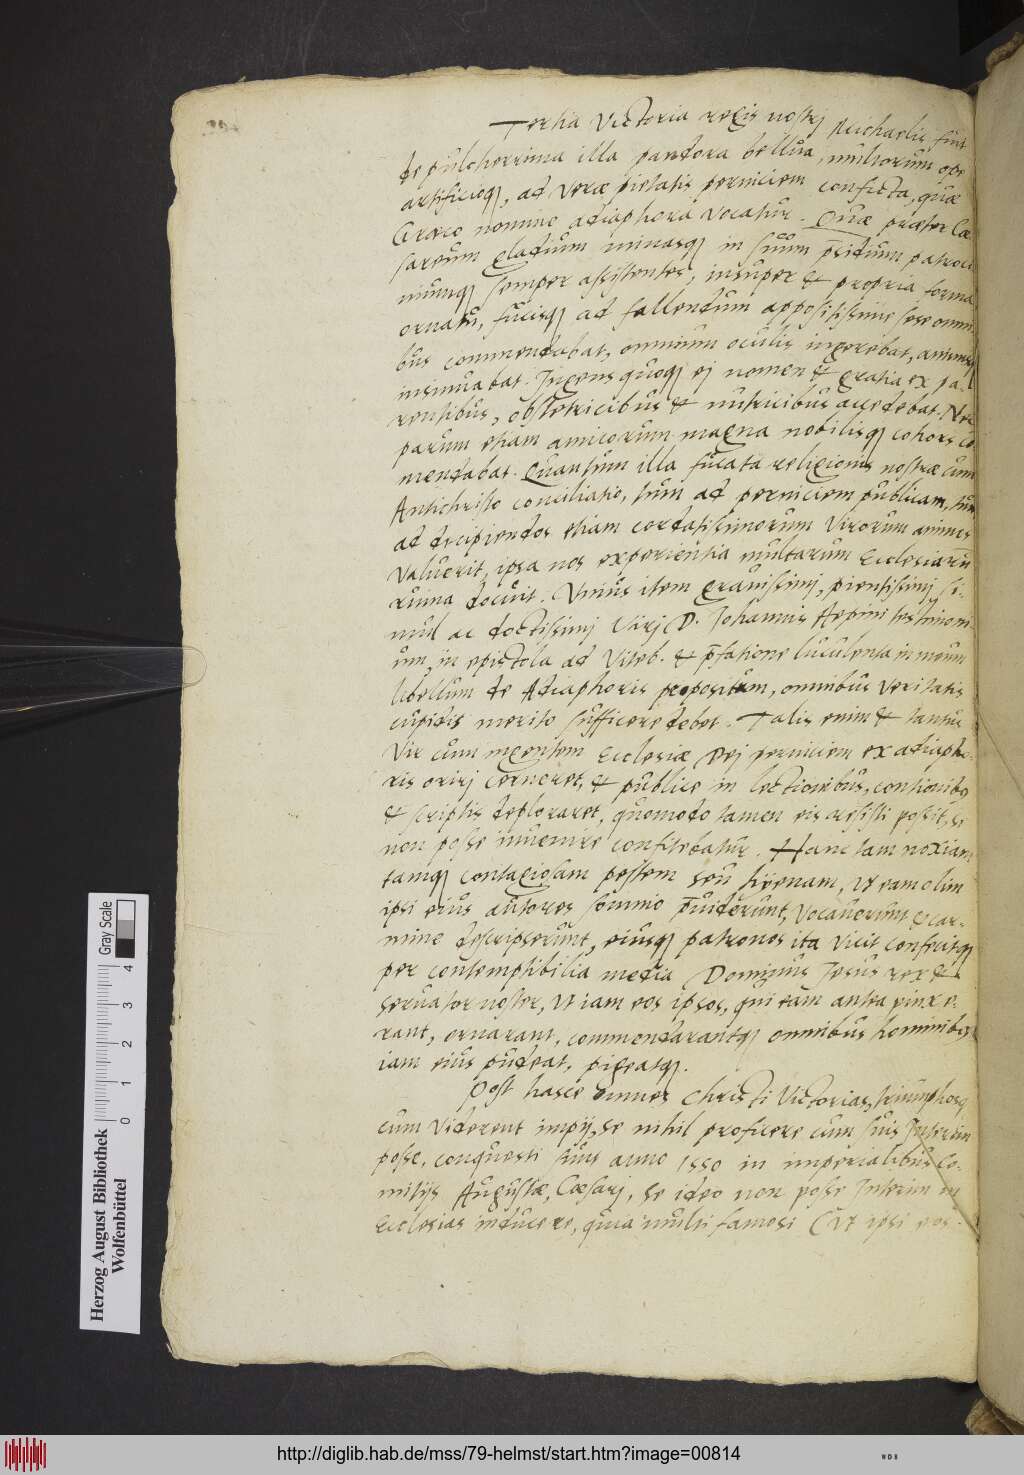 Tertia Victoria regis nostrj Michaelis, fuit
de pulcherrima illa pandora bellua, multorum ope
artificioq, ad veræ pietatis perniciem conficta, quæ
Græco nomine adiaphora vocatur. Quæ præter Cæ
sareum gladium minasq in suum p̄sidium patroci
niumq semper assistentes, insuper & propria forma
ornatu, fucisq ad fallendum appositissime sese omni
bus commendabat, omnium oculis ingerebat, animisq
insinuabat. Ingens quoq ej nomen & gratia ex pa-
rentibus, obstetricibus & nutricibus accedebat. Nec
parum etiam amicorum magna nobilisq cohors cō
mendabat. Quantum illa fucata religionis nostræ cum
Antichristo conciliatio, tum ad perniciem publicam, tum
ad decipiendos etiam cordatissimorum Virorum animos
valuerit, ipsa nos experientia multarum Ecclesiarū
ruina docuit. Unius item gravissimj, pientissimj si-
mul ac doctissimj Virj D. Johannis Aepini testimoni-
um, in epistola ad Viteb. & p̄fatione luculenta in meum
libellum de Adiaphoris propositum, omnibus veritatis
cupidis merito sufficere debet. Talis enim & tantus
Vir cum ingentem Ecclesiæ Dej perniciem ex adiapho-
ris orirj cerneret, & publice in lectionibus, contionibq
& scriptis deploraret, quomodo tamen eis resisti possit, se
non posse invenire confitebatur. Hanc tam noxiam
tamq contagiosam pestem seu hyenam, ut eam olim
ipsi eius autores somnio p̄viderunt, vocaverunt & car-
mine descripserunt, eiusq patronos ita vicit confecitq
per contemptibilia media Dominus Jesus rex &
servator noster, ut iam eos ipsos, qui eam antea finxe-
rant, ornarant, commendarantq omnibus hominibq
iam eius pudeat, pigeatq.
Post hasce omnes Christi Victorias, triumphosq
cum viderent impij, se nihil proficere cum suis Interim
posse, conquesti sunt anno 1550 in imperialibus Co-
mitijs Augustæ, Cæsarj, se ideo non posse Interim in
Ecclesias inducere, quia multi famosi (ut ipsi eos
Herzog August Bibliothek
Wolfenbüttel
0 1 2 3 4
Gray Scale
http://diglib.hab.de/mss/79-helmst/start.htm?image=00814
WDB